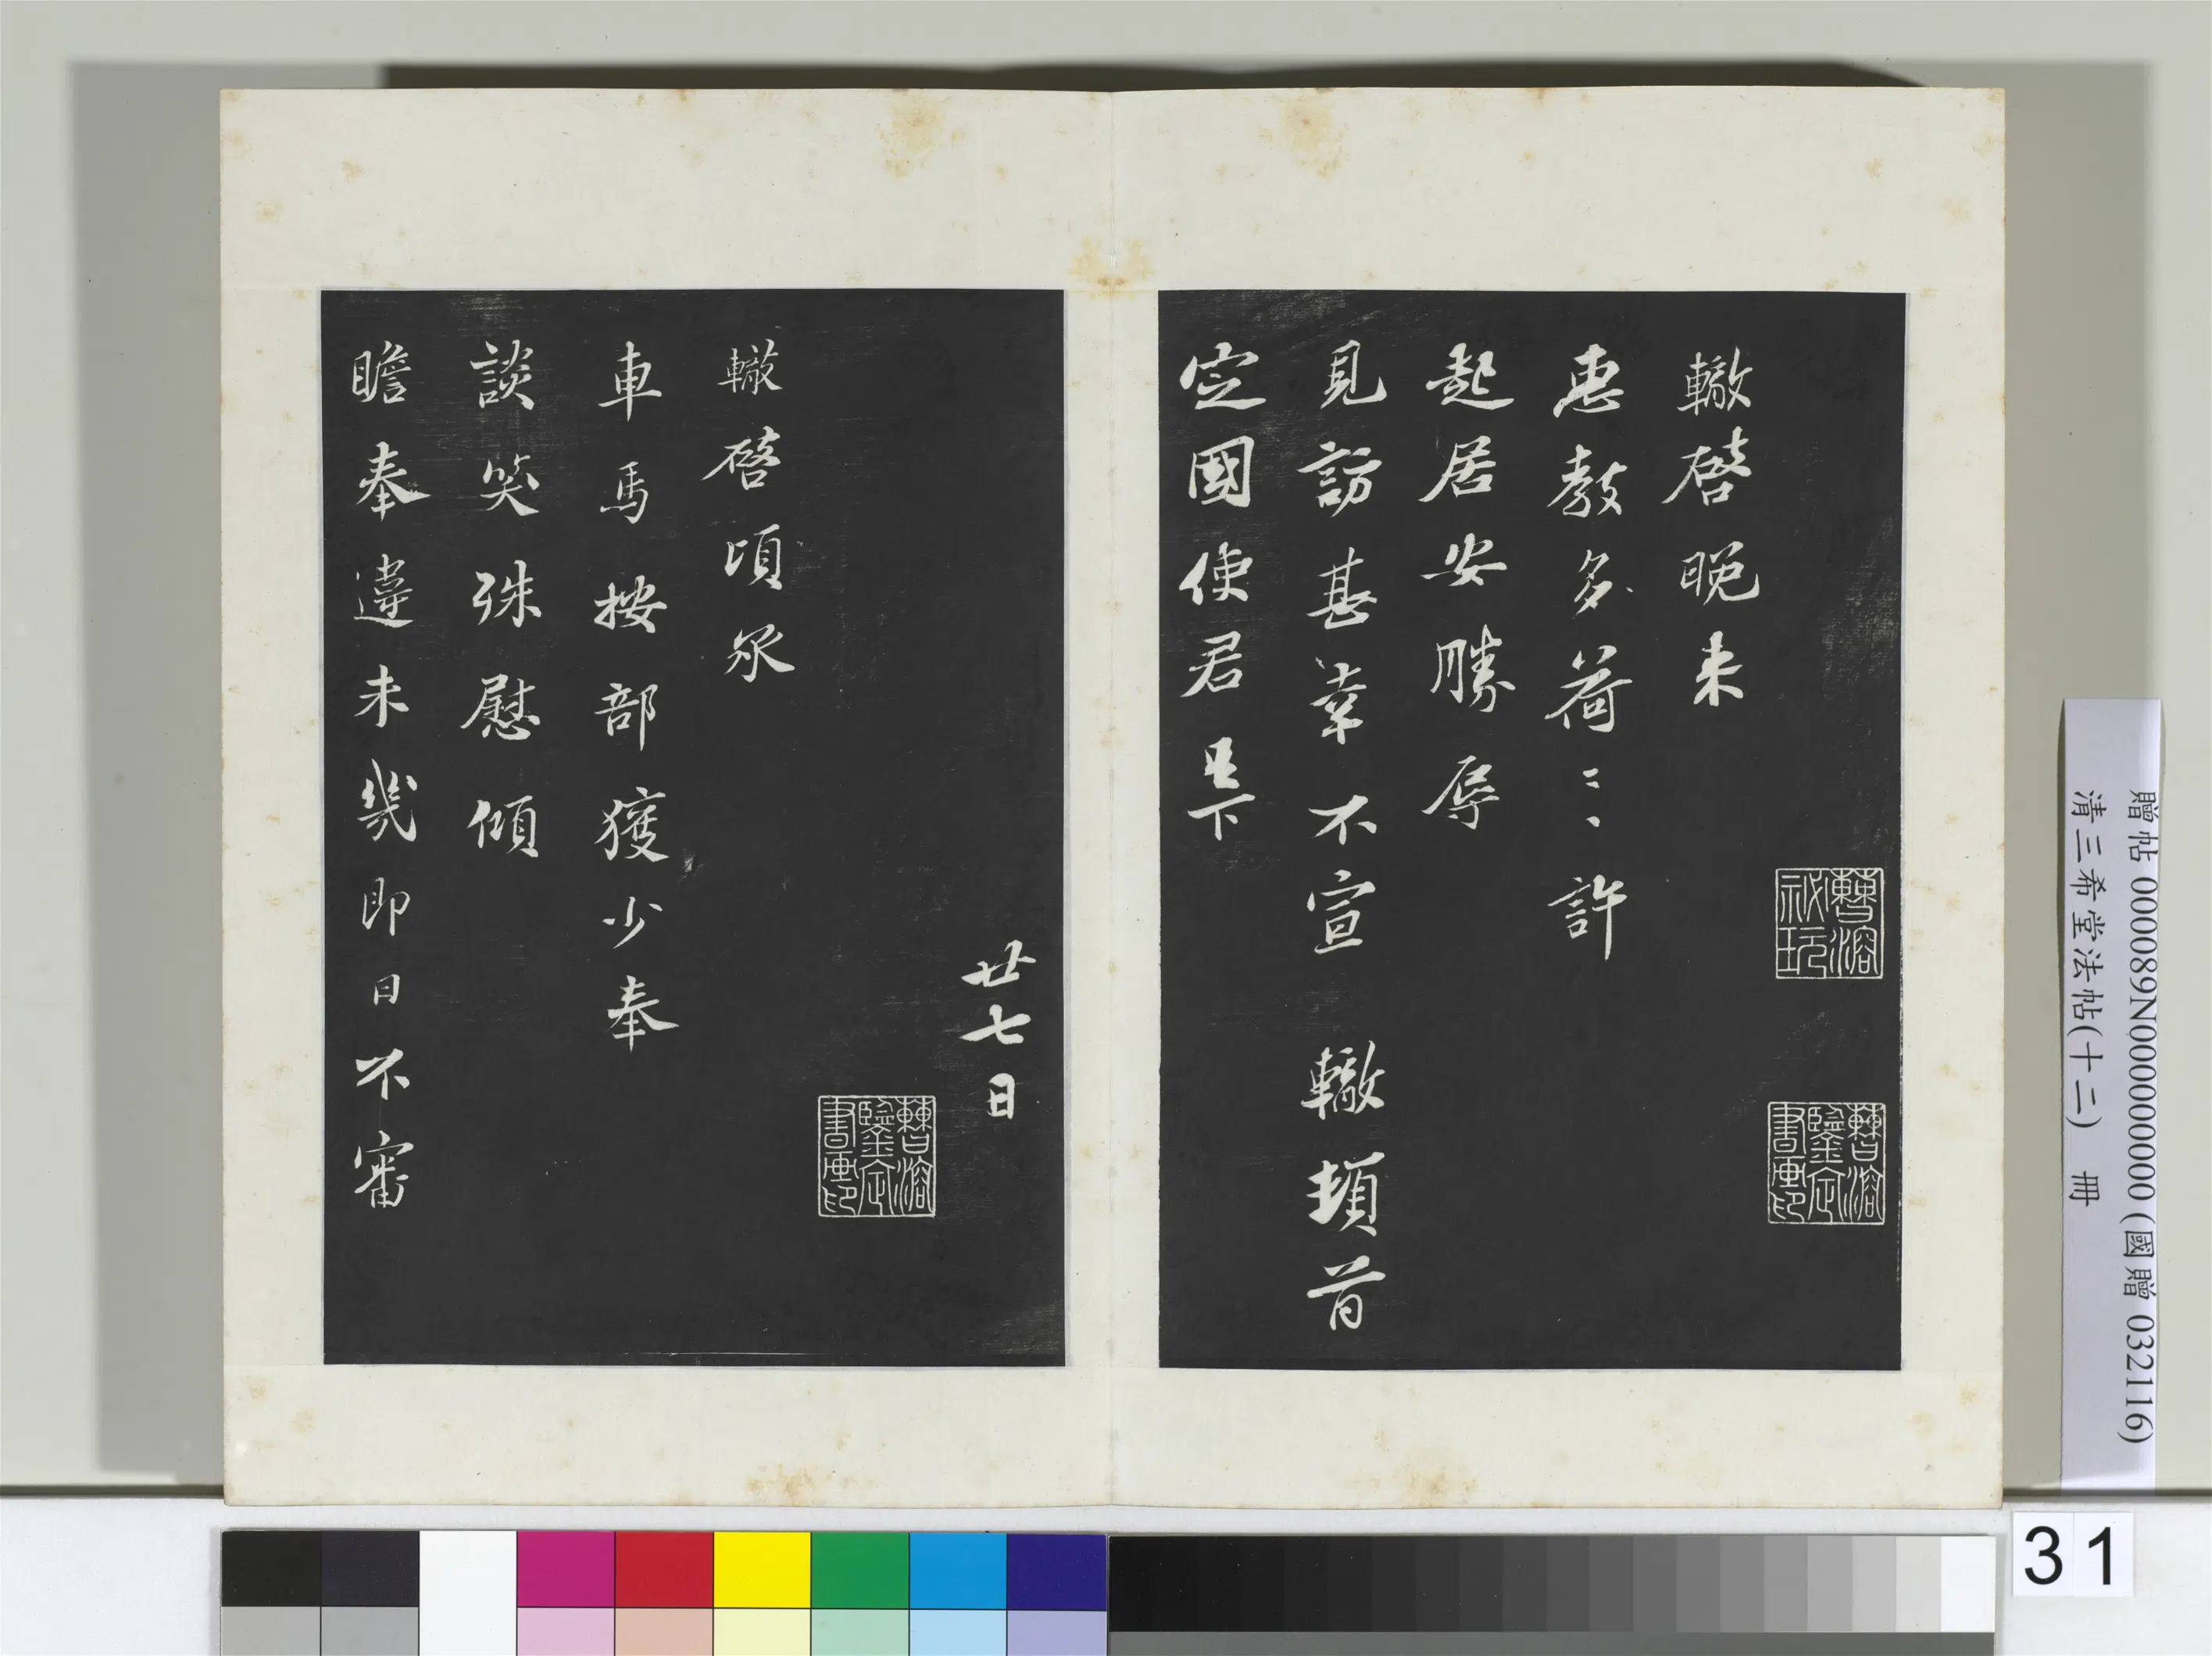 轍啓晚来
惠教多荷〻許
起居安勝辱
見訪甚幸不宣 轍頓首
定國使君足下
廿七日
轍啓頃承
車馬按部獲少奉
談笑殊慰傾
瞻奉違未幾即日不審
曹溶秘玩
曹溶鑒定書畫印
曹溶鑒定書畫印
贈帖 000089N000000000 (國贈 032116)
清三希堂法帖(十二) 冊
31